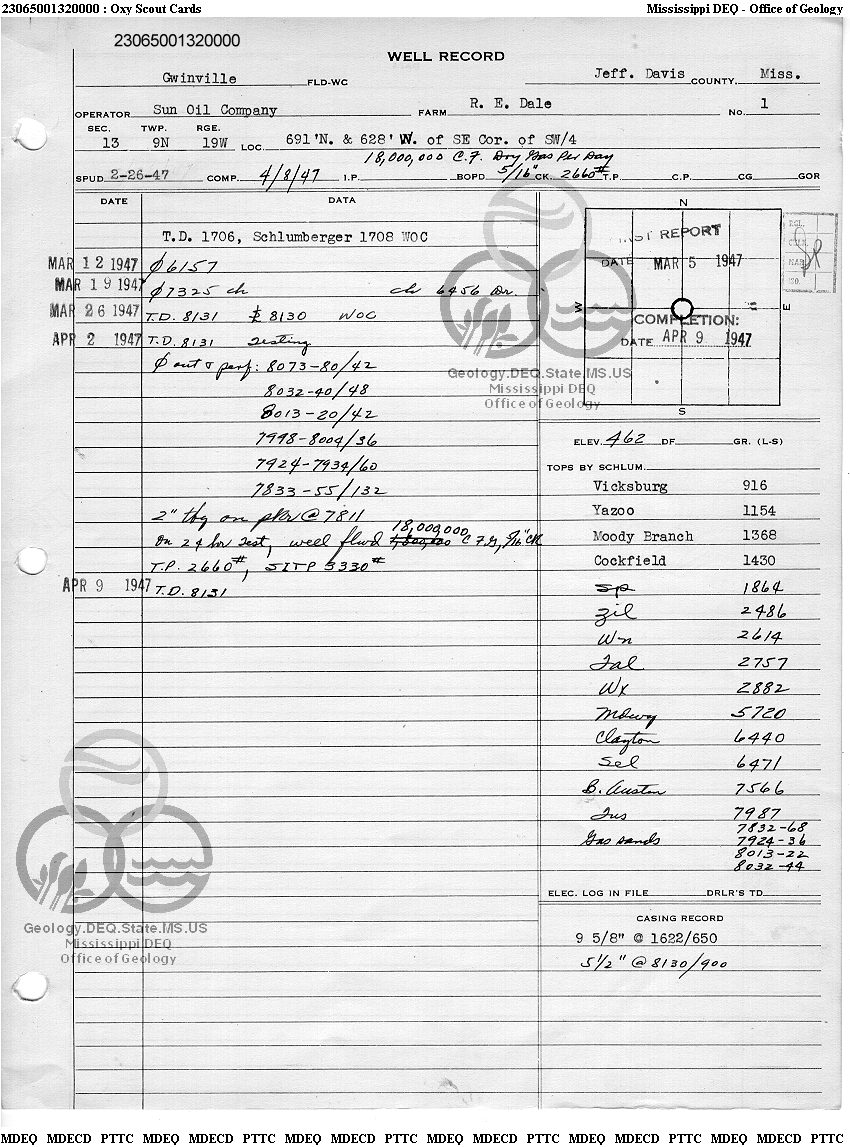 23065001320000 : Oxy Scout Cards Mississippi DEQ - Office of Geology
23065001320000
WELL RECORD
Gwinville FLD-WC Jeff. Davis COUNTY, Miss.
OPERATOR Sun Oil Company FARM R. E. Dale No. 1
SEC. 13 TWP. 9N RGE. 19W LOC. 691'N. & 628' W. of SE Cor. of SW/4
18,000,000 C.F. Dry Gas Per Day
SPUD 2-26-47 COMP. 4/8/47 I.P. BOPD 5/16" CK. 2660# T.P. C.P. CG GOR
DATE DATA
T.D. 1706, Schlumberger 1708 WOC
MAR 12 1947 ∅ 6157
MAR 19 1947 ∅ 7325 ch ch 6456 Dr.
MAR 26 1947 T.D. 8131 8130 WOC
APR 2 1947 T.D. 8131 Testing
∅ out & perf: 8073-80/42
8032-40/48
8013-20/42
7998-8004/36
7924-7934/60
7833-55/132
2" tbg on pkr @ 7811
18,000,000
On 24 hr test, well flwd 1,800,000 C F G, 5/16" CK
T.P. 2660#, SITP 3330#
APR 9 1947 T.D. 8131
N
W
E
S
FIRST REPORT
DATE MAR 5 1947
COMPLETION:
DATE APR 9 1947
Geology.DEQ.State.MS.US
Mississippi DEQ
Office of Geology
ELEV. 462 DF GR. (L-S)
TOPS BY SCHLUM.
Vicksburg 916
Yazoo 1154
Moody Branch 1368
Cockfield 1430
Sp 1864
Zil 2486
Wn 2614
Tal 2757
Wx 2882
Mdwy 5720
Clayton 6440
Sel 6471
B. Austin 7566
Tus 7987
Gas sands 7832-68
7924-36
8013-22
8032-44
ELEC. LOG IN FILE DRLR'S TD
CASING RECORD
9 5/8" @ 1622/650
5 1/2" @ 8130/900
Geology.DEQ.State.MS.US
Mississippi DEQ
Office of Geology
MDEQ MDECD PTTC MDEQ MDECD PTTC MDEQ MDECD PTTC MDEQ MDECD PTTC MDEQ MDECD PTTC MDEQ MDECD PTTC